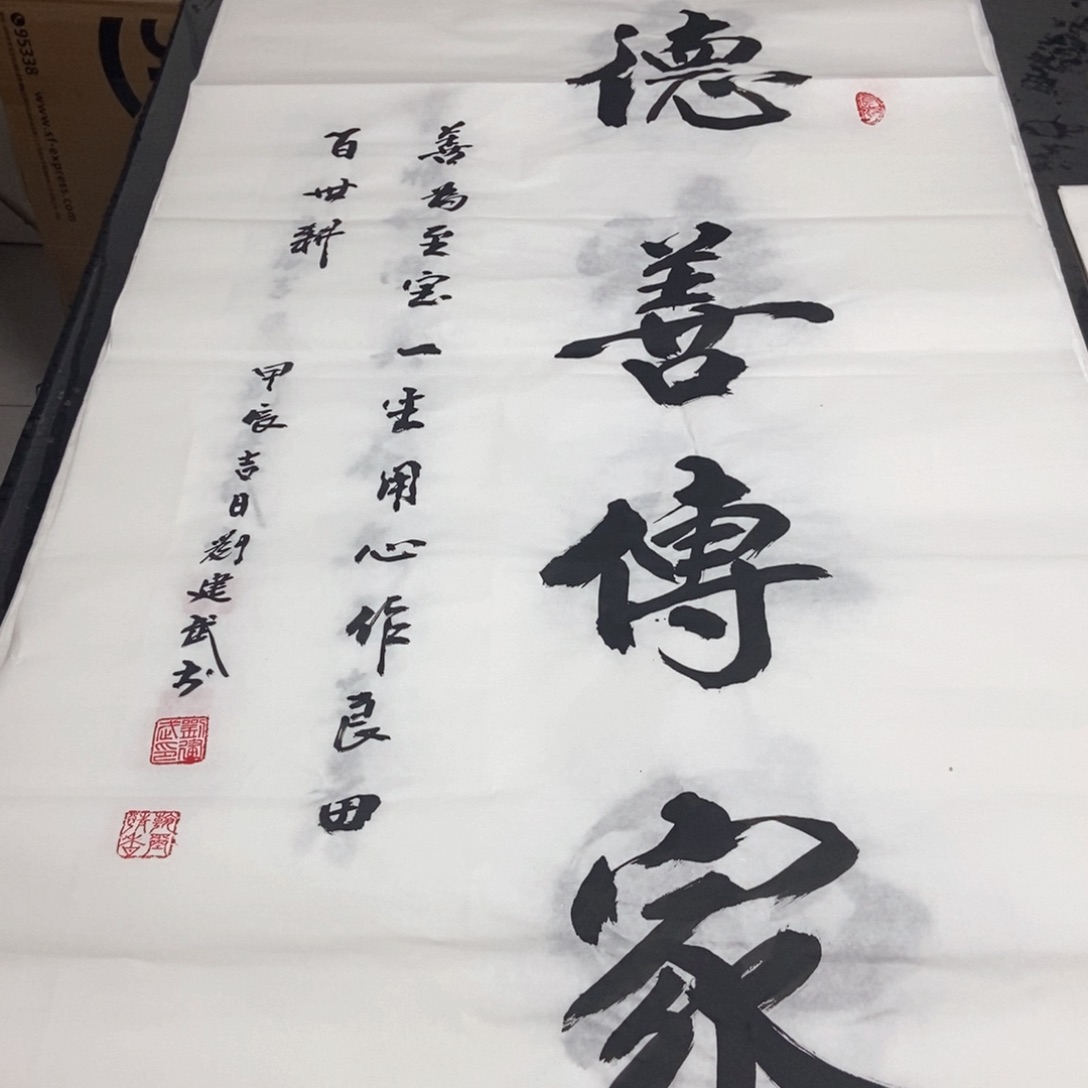 德善傳家
善為至宝一生用心作良田
百世耕
甲辰吉日劉建武书
劉建武印
95338 www.sf-express.com